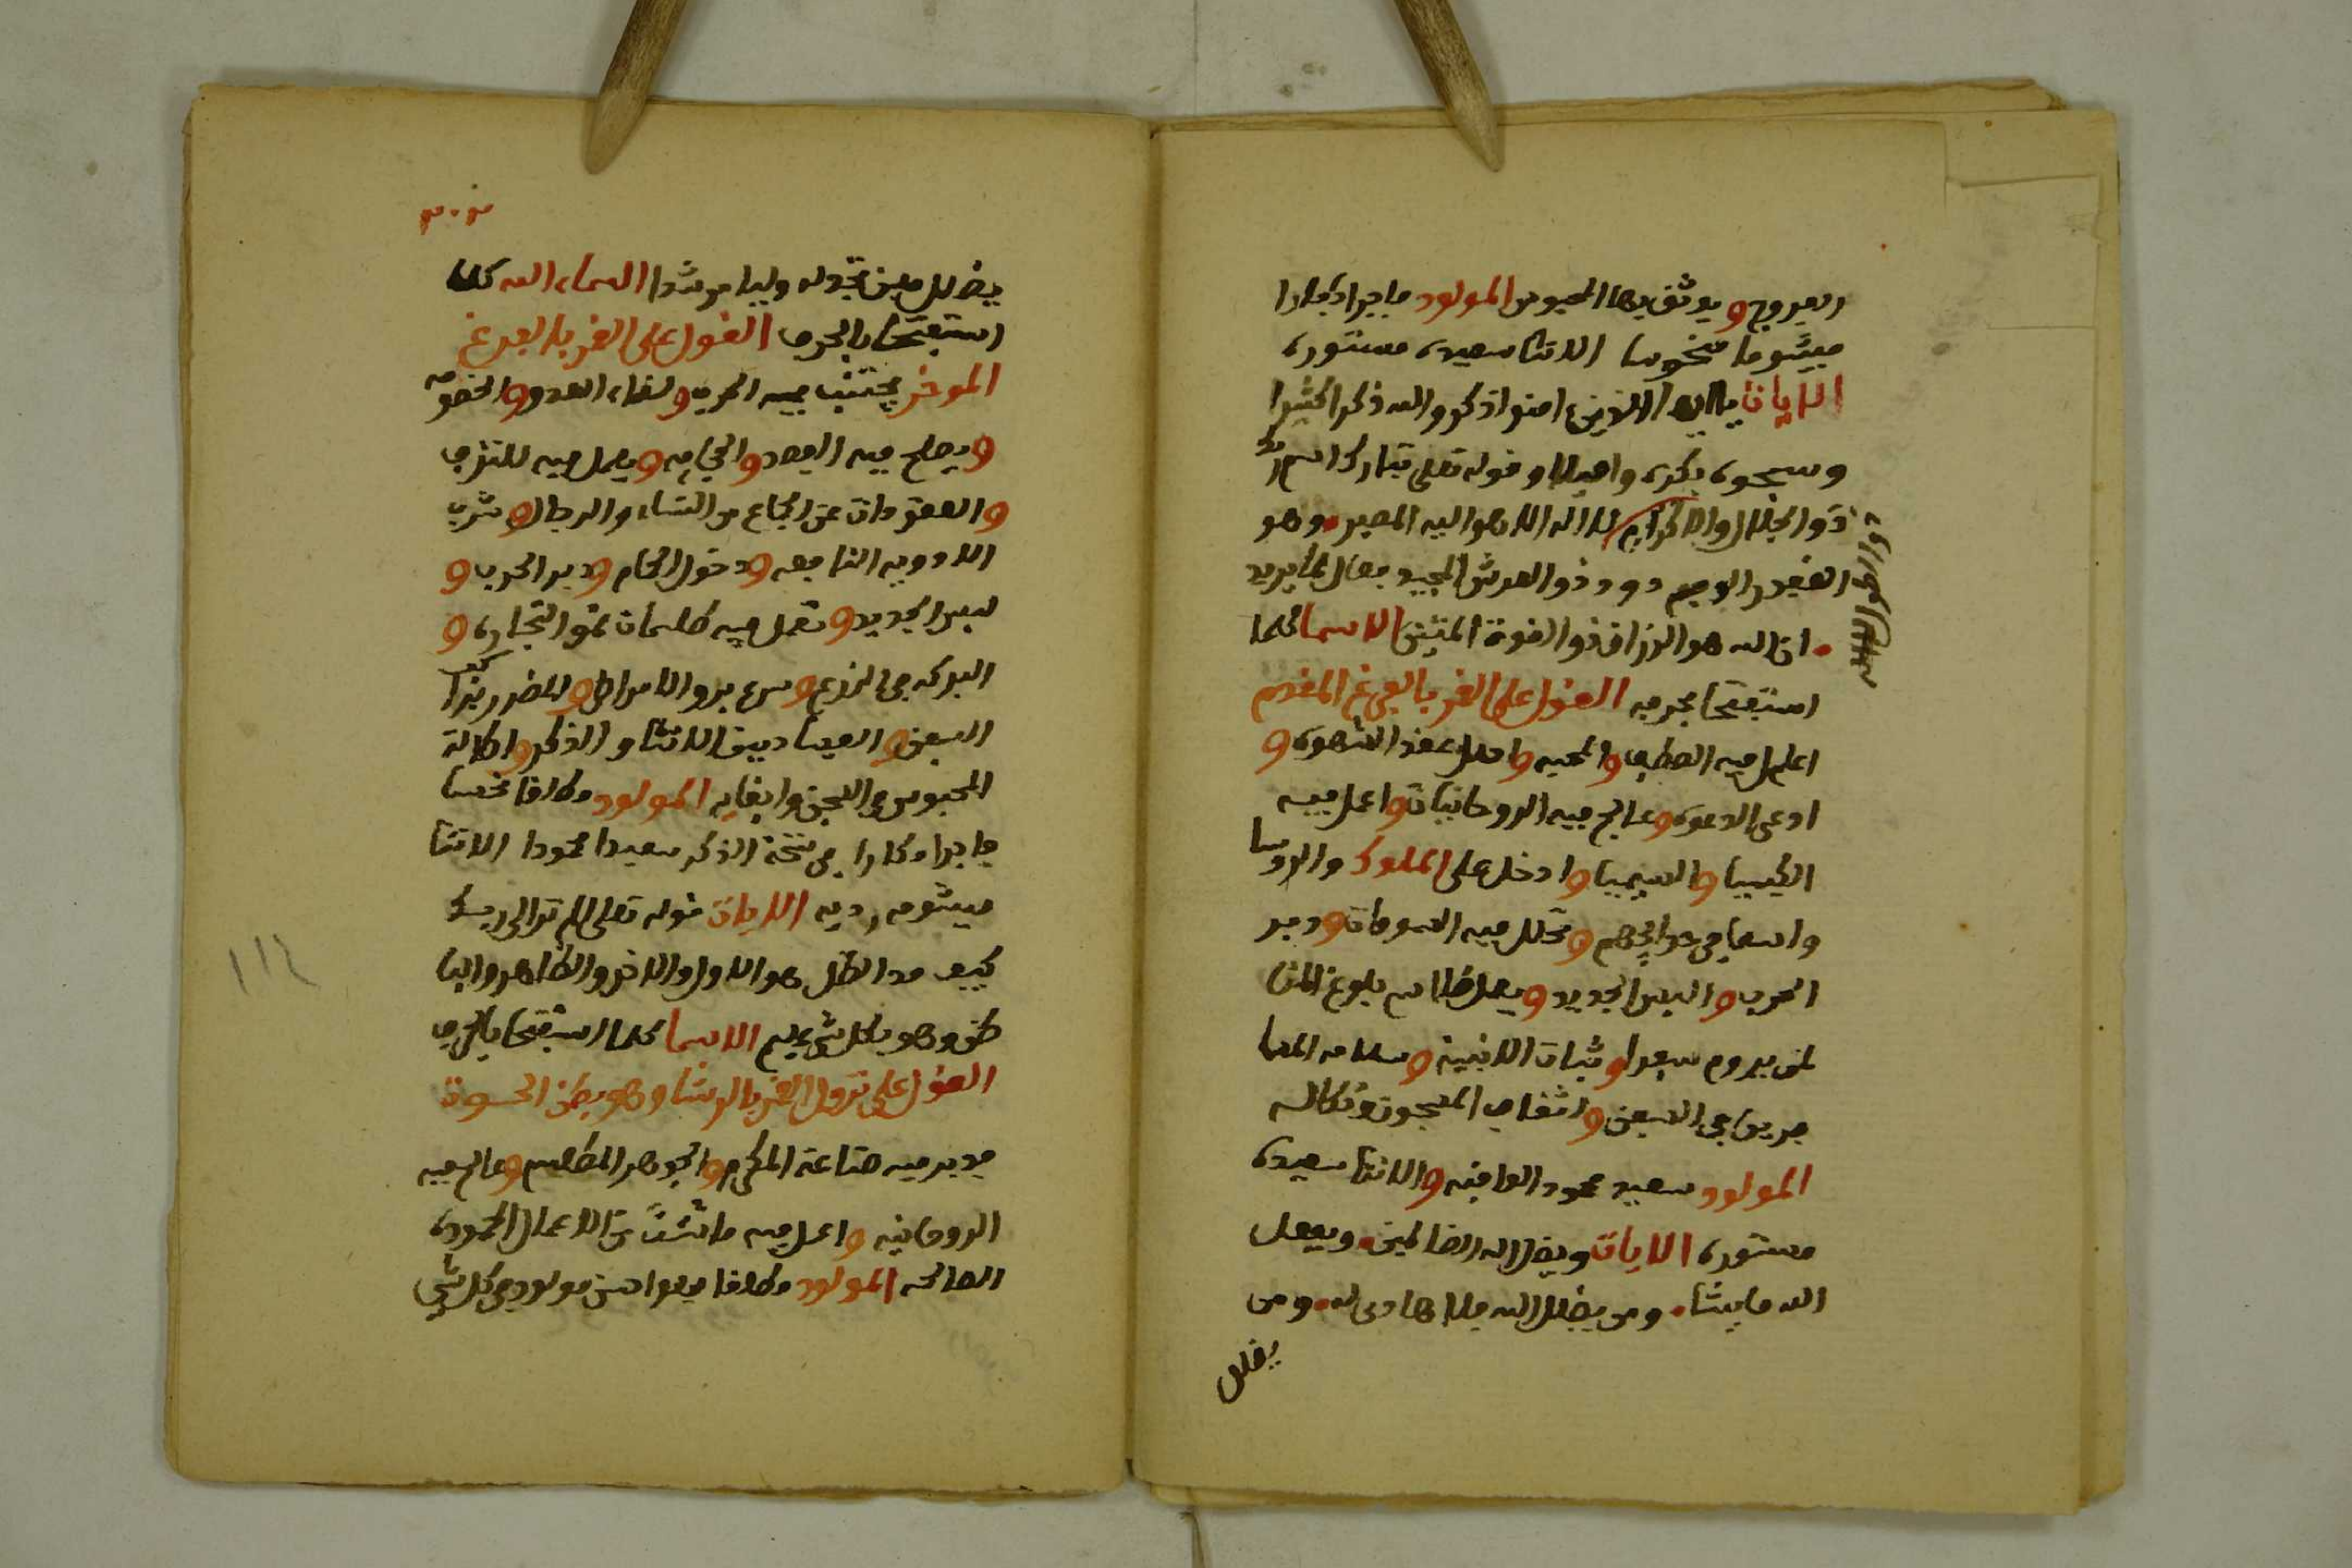 الفروج و يوثق بها المحبوس المولود فاجرا مكارا
ميشوما منحوسا الانثا سعيدة مستورة
الايات يا ايها الذين امنوا اذكروا الله ذكرا كثيرا
وسبحوه بكرة واصيلا وقوله تعلى تبارك اسم ربك
ذو الجلال والاكرام لا اله الا هو اليه المصير وهو
الودود ذو العرش المجيد فعال لما يريد
ان الله هو الرزاق ذو القوة المتين الاسما كلما
استفتحا بحرف القول على الفرع المقدم
اعلم فيه العطف والمحبه واحلل عقد الشهوة و
ادعى الدعوة وعالج فيه الروحانيات واعمل فيه
الكيميا والسيميا وادخل على الملوك والروسا
واسعا في حوايجهم وتحلل فيه السومات ودبر
الحرب والبس الجديد ويعمل طلاسم بلوغ المنا
لمن يروم سفرا وثبات الابنية وسلامه المسا
فرين في السفن و المسجون ونكاله
المولود سعيد محمود العاقبه والانثا سعيدة
مستورة الايات ويضل الله الضالمين ويفعل
الله ما يشا ومن يضلل الله فلا هادى له ومن
يضلل
يضلل فلن تجد له وليا مرشدا السماء الله كلما
استفتحا بالحرف القول على الفرغ
الموخر يجتنب فيه الحرب ولقاء العدو والخصومه
ويصلح فيه الفصد والحجامه ويعمل فيه للنزيف
والعقودات عن الجماع من النساء والرجال وشرب
الادويه النافعه ودخول الحمام ودبر الحرب و
لبس الجديد وتعمل فيه طلسمات نمو التجاره و
البركه في الزرع وسرع بروا الامراض والضرر كثيرا
السفن والفساد بين الانثا والذكر واطالة
المحبوس في السجن وايفايه المولود مطلقا نحسا
فاجرا مكارا في نسخة الذكر سعيدا محمودا الانثا
ميشومه رديه الايات قوله تعلى الم تر الى ربك
كيف مد الظل هو الاول والاخر والظاهر والبا
طن وهو بكل شي عليم الاسما كلما استفتحا بالحرف
القول على نزول القمر بالرشا وهو بطن الحوت
فدبر فيه صناعة المكرم والجوهر المطلسم وعالج فيه
الروحانيه واعمل فيه ما شئت من الاعمال المحموده
الصالحه المولود مطلقا فهو احسن مولود في كل شي